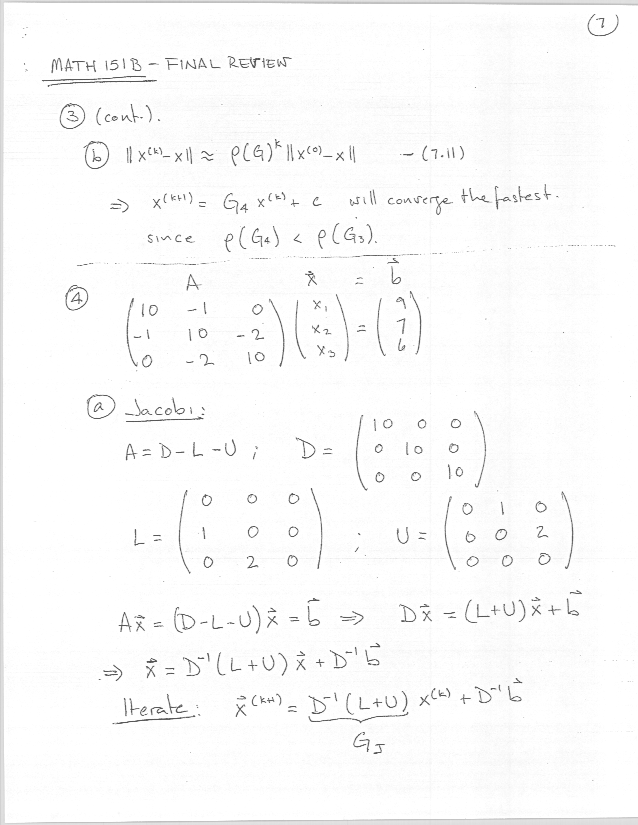 (7)
MATH 151B – FINAL REVIEW
③ (cont.).
ⓑ ||x^(k) – x|| ≈ ρ(G)^k ||x^(0) – x|| – (7.11)
⇒ x^(k+1) = G₄ x^(k) + c will converge the fastest.
since ρ(G₄) < ρ(G₃).
A x⃗ = b⃗
④ (10 -1 0; -1 10 -2; 0 -2 10) (x₁; x₂; x₃) = (9; 7; 6)
ⓐ Jacobi:
A = D – L – U ; D = (10 0 0; 0 10 0; 0 0 10)
L = (0 0 0; 1 0 0; 0 2 0) ; U = (0 1 0; 0 0 2; 0 0 0)
Ax⃗ = (D–L–U) x⃗ = b⃗ ⇒ Dx⃗ = (L+U) x⃗ + b⃗
⇒ x⃗ = D⁻¹(L+U) x⃗ + D⁻¹ b⃗
Iterate: x⃗^(k+1) = D⁻¹(L+U) x^(k) + D⁻¹ b⃗
G_J